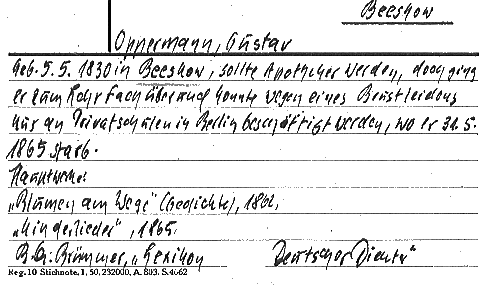 Beeskow
Oppermann, Gustav
Geb. 5.5. 1830 in Beeskow, sollte Apotheker werden, doch ging
er zum Lehrfach über und konnte wegen eines Brustleidens
nur an Privatschulen in Berlin beschäftigt werden, wo er 31.5.
1865 starb.
Hauptwerke:
„Blumen am Wege" (Gedichte), 1862,
„Kinderlieder", 1865.
Brümmer, „Lexikon Deutscher Dichter"
Reg. 10 Stichnote, I, 50, 232000, A. 803. S. 4662